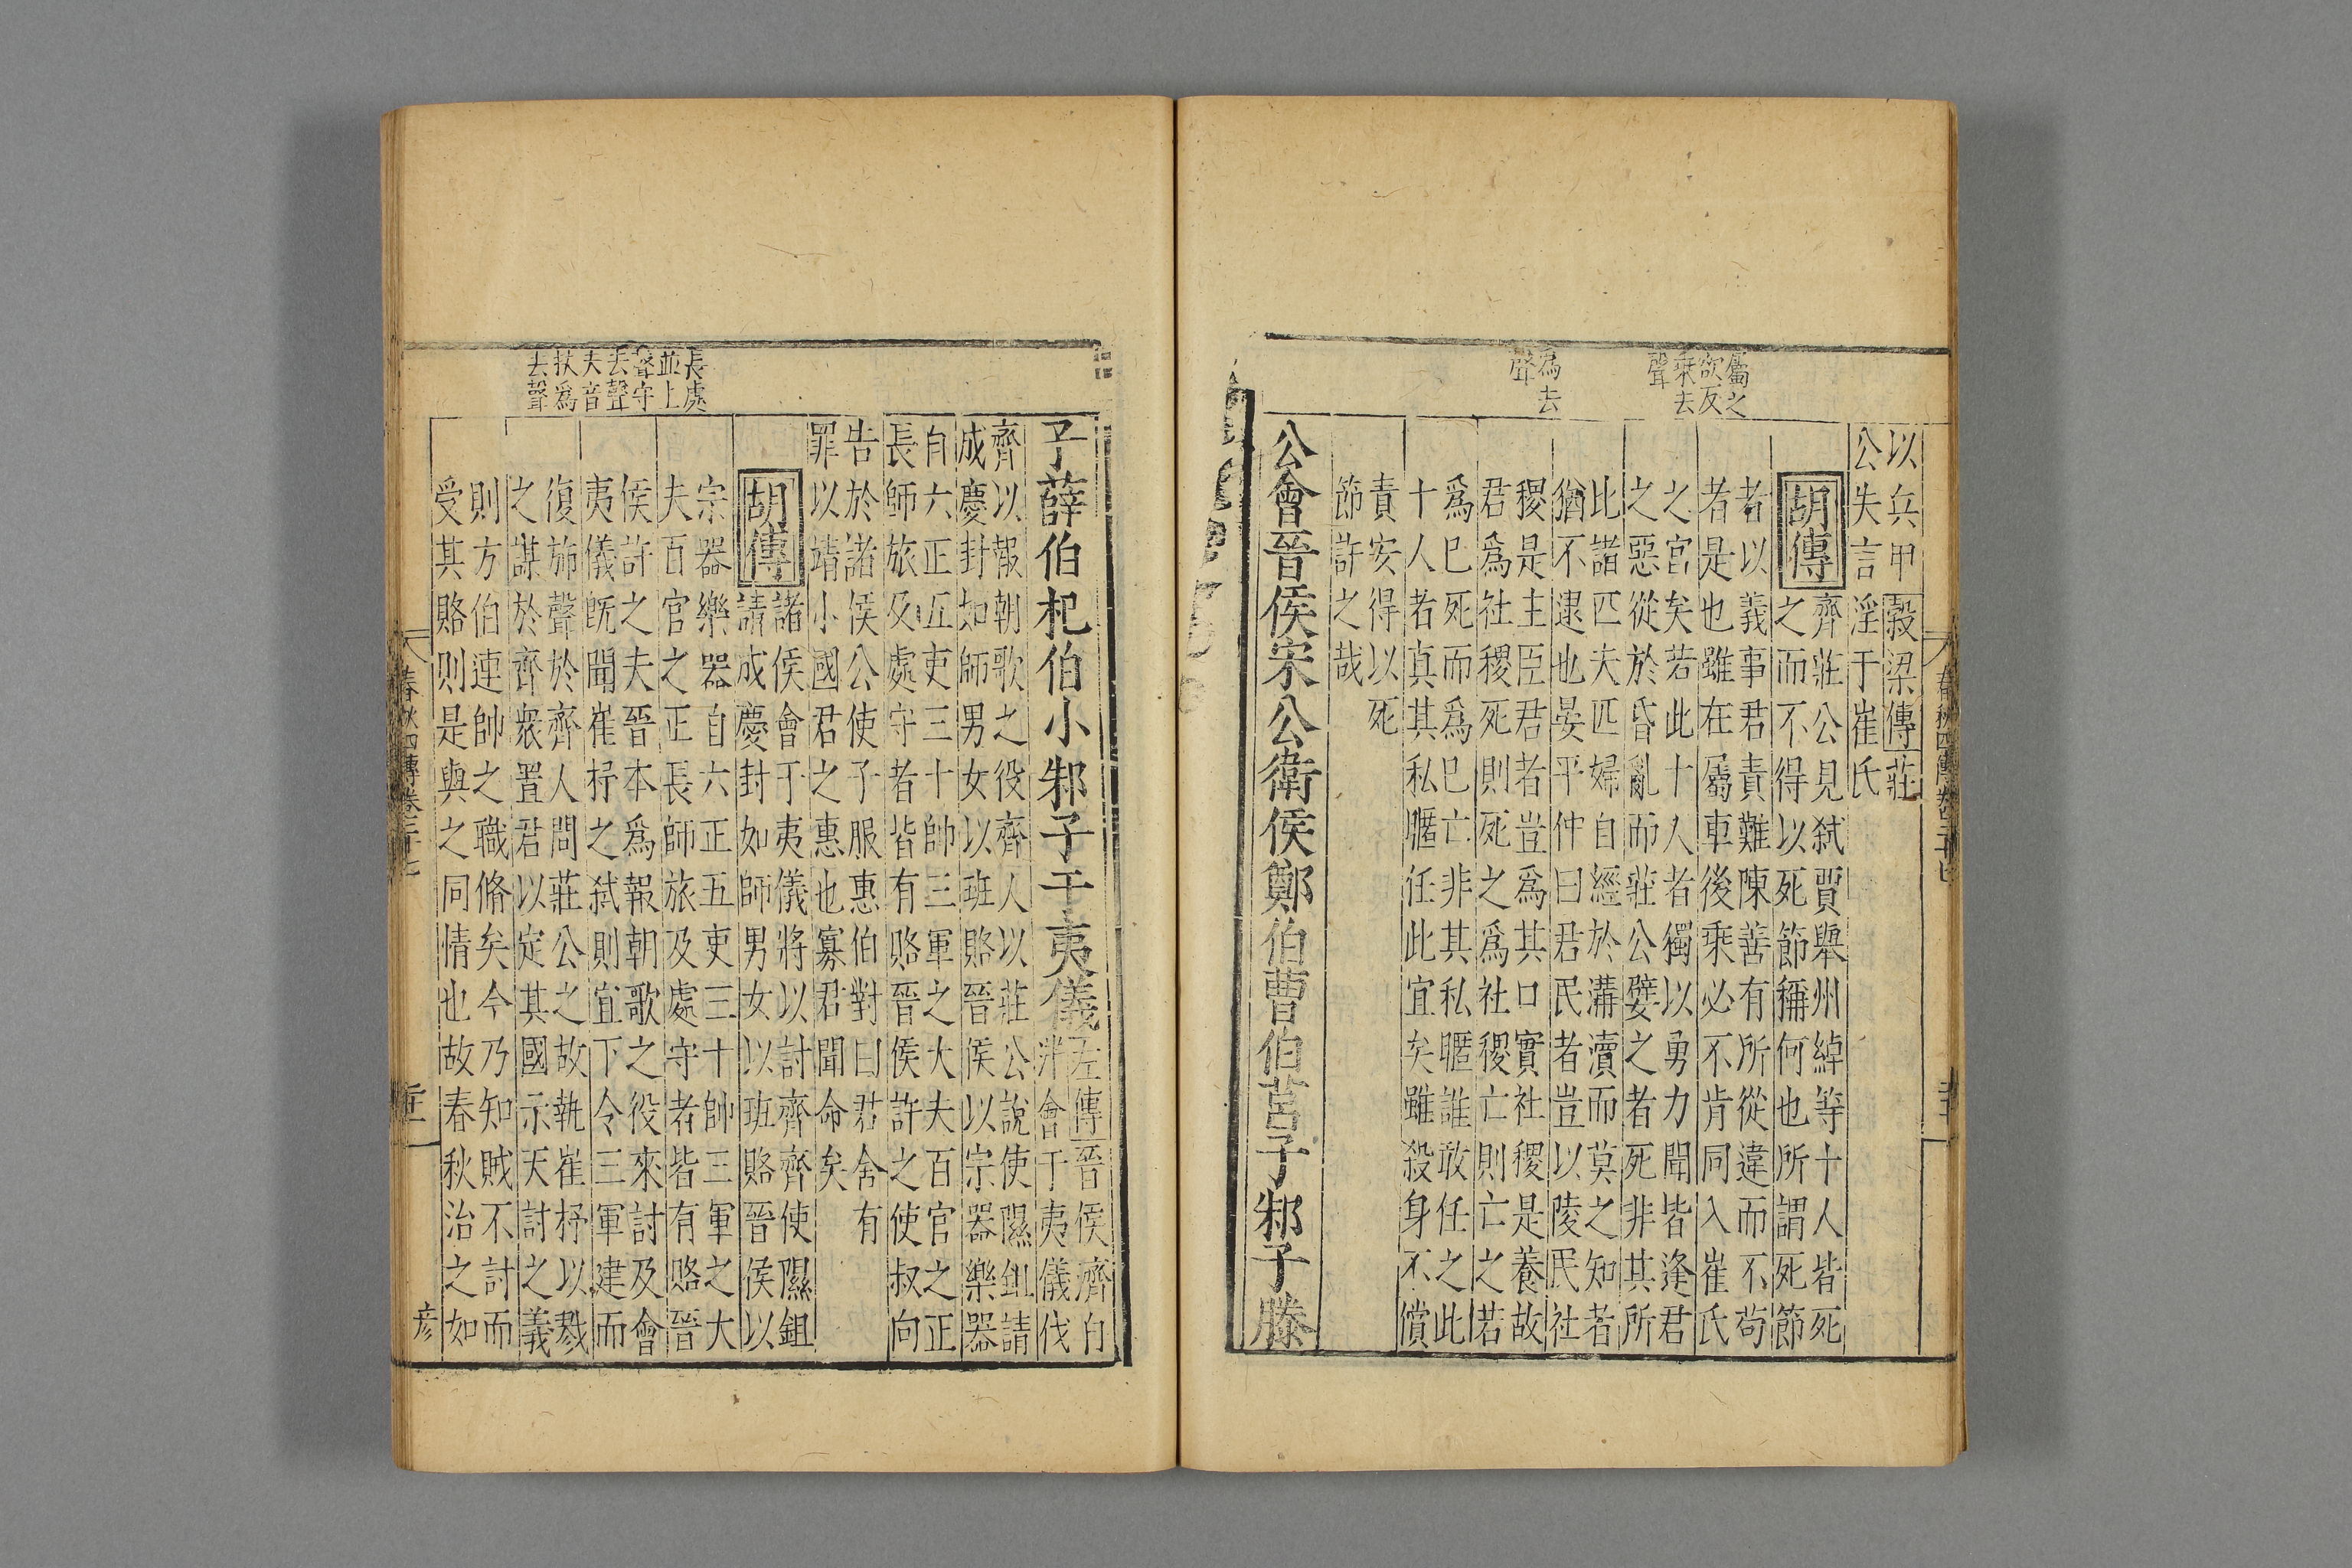 以兵甲穀梁傳莊
公失言淫于崔氏
胡傳
齊莊公見弑賈舉州綽等十人皆死
之而不得以死節稱何也所謂死節
者以義事君責難陳善有所從違而不苟
者是也雖在屬車後乘必不肯同入崔氏
之宮矣若此十人者獨以勇力聞皆逢君
之惡從於昏亂而莊公嬖之者死非其所
比諸匹夫匹婦自經於溝瀆而莫之知者
猶不逮也晏平仲曰君民者豈以陵民社
稷是主臣君者豈爲其口實社稷是養故
君爲社稷死則死之爲社稷亡則亡之若
爲巳死而爲巳亡非其私暱誰敢任之此
十人者真其私暱任此宜矣雖殺身不償
責安得以死
節許之哉
公會晉侯宋公衛侯鄭伯曹伯莒子邾子滕
屬之
欲反
乘去
聲
爲去
聲
子薛伯杞伯小邾子于夷儀
左傳晉侯濟自
泮會于夷儀伐
齊以報朝歌之役齊人以莊公說使隰鉏請
成慶封如師男女以班賂晉侯以宗器樂器
自六正五吏三十帥三軍之大夫百官之正
長師旅及處守者皆有賂晉侯許之使叔向
告於諸侯公使子服惠伯對曰君舍有
罪以靖小國君之惠也寡君聞命矣
胡傳
諸侯會于夷儀將以討齊齊使隰鉏
請成慶封如師男女以班賂晉侯以
宗器樂器自六正五吏三十帥三軍之大
夫百官之正長師旅及處守者皆有賂晉
侯許之夫晉本爲報朝歌之役來討及會
夷儀既聞崔杼之弑則宜下令三軍建而
復斾聲於齊人問莊公之故執崔杼以戮
之謀於齊衆置君以定其國示天討之義
則方伯連帥之職脩矣今乃知賊不討而
受其賂則是與之同情也故春秋治之如
長處
並上
聲守
去聲
夫音
扶爲
去聲
春秋四傳卷二十七
彦